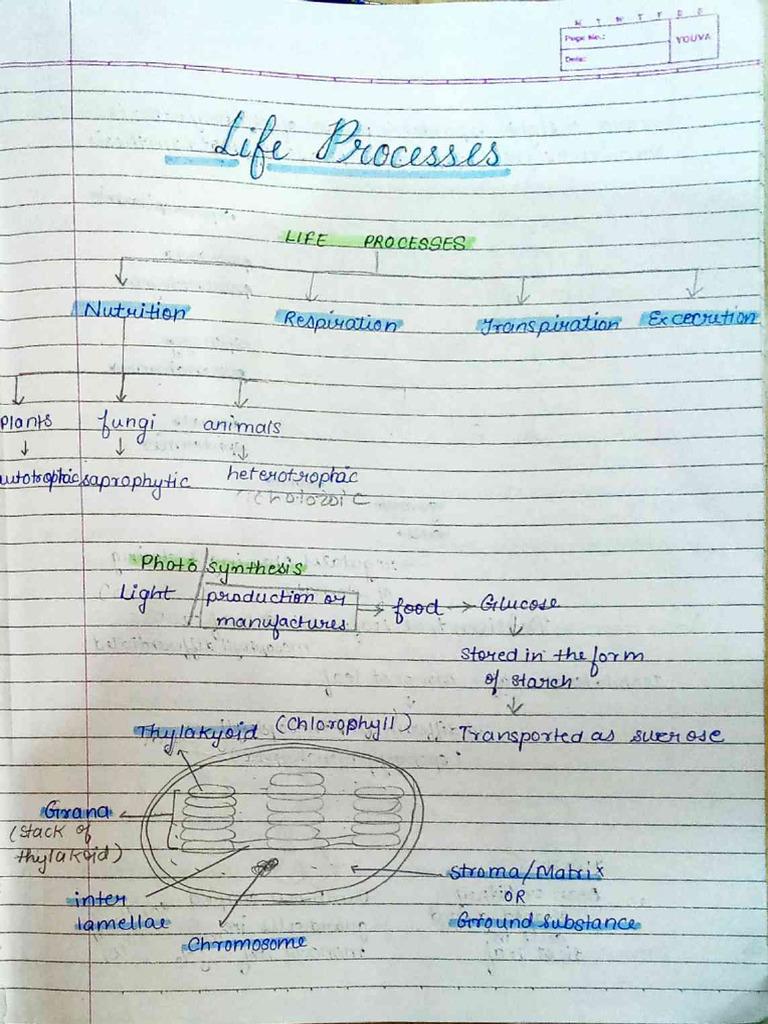 M T W T F S S
Page No.:
YOUVA
Date:
Life Processes
LIFE PROCESSES
Nutrition Respiration Transpiration Excecretion
plants fungi animals
autotrophic saprophytic heterotrophic
(holozoic
Photo synthesis
Light production or food Glucose
manufactures
stored in the form
of starch
Thylakyoid (Chlorophyll) Transported as sucrose
Grana
(stack of
thylakoid)
stroma/Matrix
inter OR
lamellae Ground substance
Chromosome